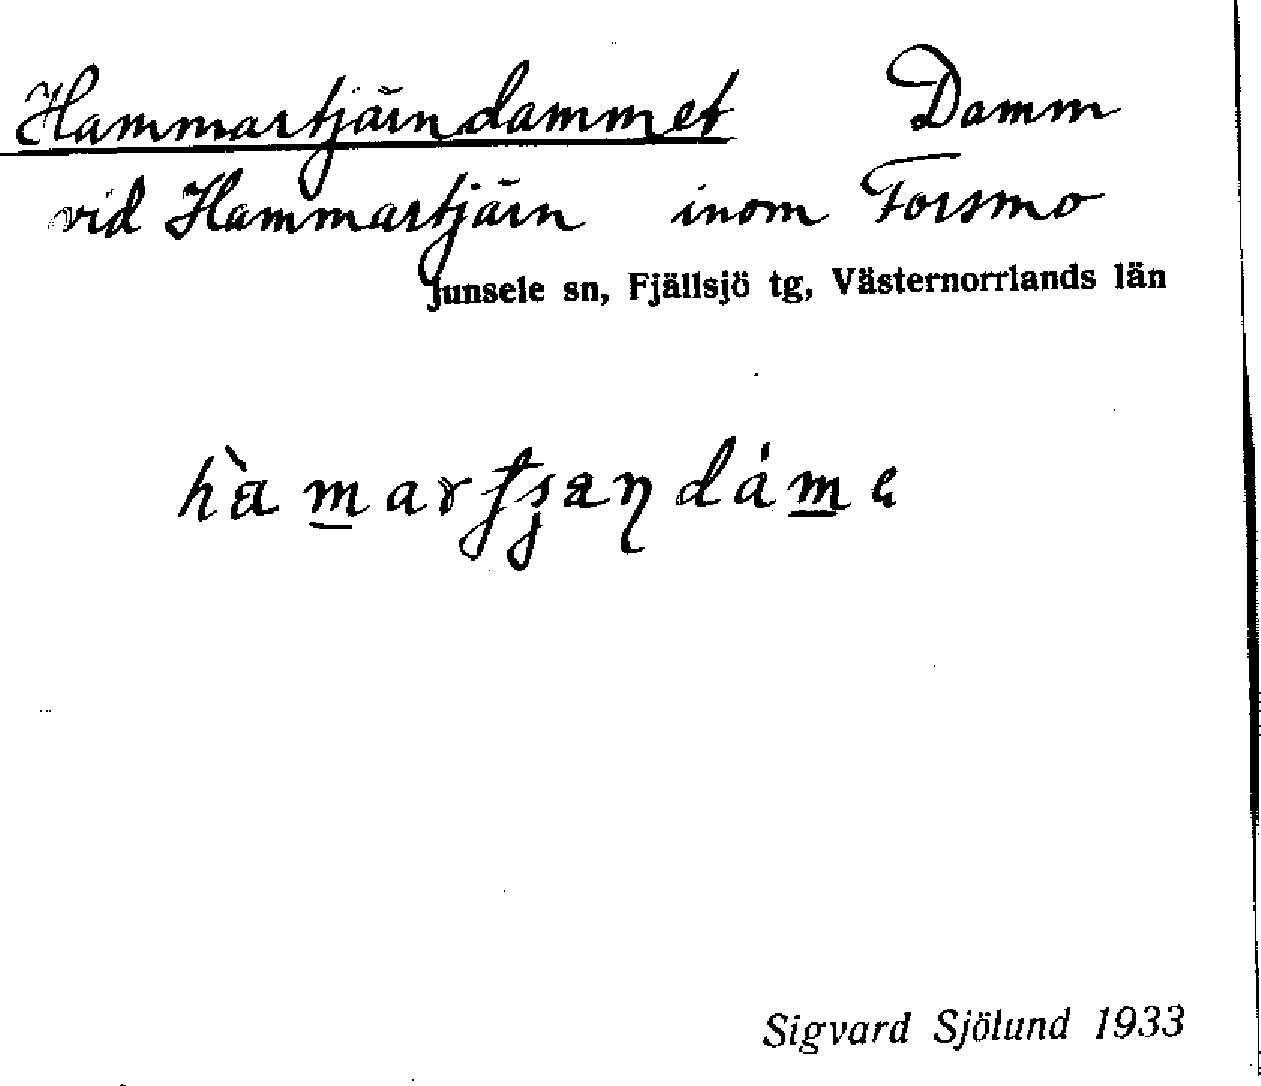 Hammartjärndammet Damm
vid Hammartjärn inom Forsmo
Junsele sn, Fjällsjö tg, Västernorrlands län
Sigvard Sjölund 1933